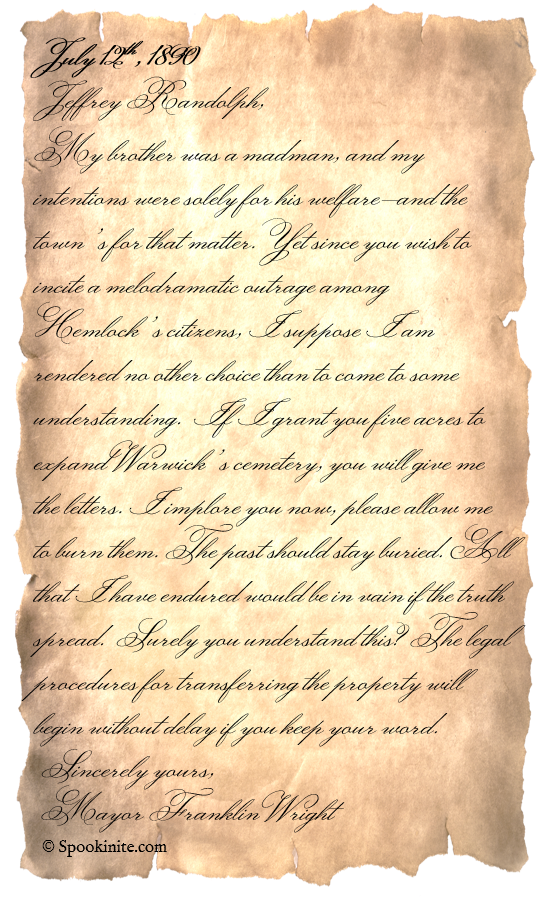 July 12th, 1890
Jeffrey Randolph,
My brother was a madman, and my
intentions were solely for his welfare—and the
town's for that matter. Yet since you wish to
incite a melodramatic outrage among
Hemlock's citizens, I suppose I am
rendered no other choice than to come to some
understanding. If I grant you five acres to
expand Warwick's cemetery, you will give me
the letters. I implore you now, please allow me
to burn them. The past should stay buried. All
that I have endured would be in vain if the truth
spread. Surely you understand this? The legal
procedures for transferring the property will
begin without delay if you keep your word.
Sincerely yours,
Mayor Franklin Wright
© Spookinite.com